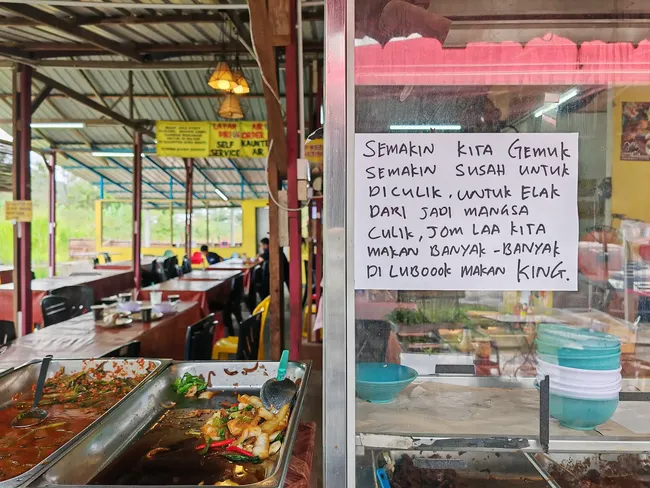 LAPAN
DIRI
SELF
SERVICE
AIR
ORDER
KAUNTER
AIR
SEMAKIN KITA GEMUK
SEMAKIN SUSAH UNTUK
DICULIK, UNTUK ELAK
DARI JADI MANGSA
CULIK, JOM LAA KITA
MAKAN BANYAK-BANYAK
DI LUBOOOK MAKAN KING.